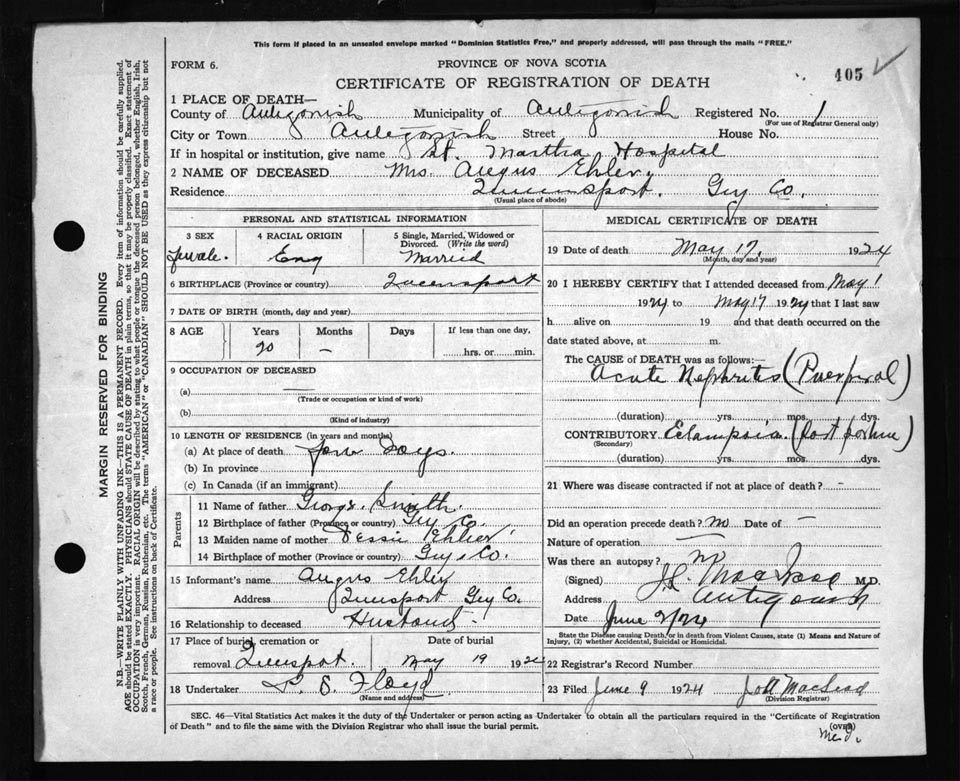 This form if placed in an unsealed envelope marked "Dominion Statistics Free," and properly addressed, will pass through the mails "FREE."
FORM 6.
PROVINCE OF NOVA SCOTIA
405
CERTIFICATE OF REGISTRATION OF DEATH
1 PLACE OF DEATH—
County of Antigonish Municipality of Antigonish Registered No. 1
(For use of Registrar General only)
City or Town Antigonish Street House No.
If in hospital or institution, give name St. Martha Hospital
2 NAME OF DECEASED Mrs. Angus Ehler
Residence Queensport. Guy Co.
(Usual place of abode)
PERSONAL AND STATISTICAL INFORMATION
3 SEX 4 RACIAL ORIGIN 5 Single, Married, Widowed or Divorced. (Write the word)
female. Eng Married
6 BIRTHPLACE (Province or country) Queensport
7 DATE OF BIRTH (month, day and year)
8 AGE Years Months Days If less than one day,
20 — hrs. or min.
9 OCCUPATION OF DECEASED
(a) —
(Trade or occupation or kind of work)
(b)
(Kind of industry)
10 LENGTH OF RESIDENCE (in years and months)
(a) At place of death Days.
(b) In province
(c) In Canada (if an immigrant)
Parents
11 Name of father George Smith.
12 Birthplace of father (Province or country) Guy Co.
13 Maiden name of mother Jessie Ehler
14 Birthplace of mother (Province or country) Guy. Co.
15 Informant's name Angus Ehler
Address Queensport Guy Co.
16 Relationship to deceased Husband
17 Place of burial, cremation or removal Queensport. Date of burial May 19 1924
18 Undertaker S. Floyd
(Name and address)
MEDICAL CERTIFICATE OF DEATH
19 Date of death May 17, 1924
(Month, day and year)
20 I HEREBY CERTIFY that I attended deceased from May 1
1924 to May 17 1924 that I last saw
h alive on 19 and that death occurred on the
date stated above, at m.
The CAUSE of DEATH was as follows:—
Acute Nephritis (Puerperal)
(duration) yrs. mos. dys.
CONTRIBUTORY Eclampsia. (Post partum)
(Secondary)
(duration) yrs. mos. dys.
21 Where was disease contracted if not at place of death? -
Did an operation precede death? no Date of —
Nature of operation —
Was there an autopsy? no
(Signed) M.D.
Address Antigonish
Date June 2/24
State the Disease causing Death, or in death from Violent Causes, state (1) Means and Nature of Injury, (2) whether Accidental, Suicidal or Homicidal.
22 Registrar's Record Number
23 Filed June 9 1924 MacLeod
(Division Registrar)
SEC. 46—Vital Statistics Act makes it the duty of the Undertaker or person acting as Undertaker to obtain all the particulars required in the "Certificate of Registration
of Death" and to file the same with the Division Registrar who shall issue the burial permit. (over)
MARGIN RESERVED FOR BINDING
N.B.—WRITE PLAINLY WITH UNFADING INK—THIS IS A PERMANENT RECORD. Every item of information should be carefully supplied.
AGE should be stated EXACTLY. PHYSICIANS should STATE CAUSE OF DEATH in plain terms, so that it may be properly classified. Exact statement of
OCCUPATION is very important. RACIAL ORIGIN will be described by stating to what people or tongue the deceased person belonged, whether English, Irish,
Scotch, French, German, Russian, Ruthenian, etc. The terms "AMERICAN" or "CANADIAN" SHOULD NOT BE USED as they express citizenship but not
a race or people. See instructions on back of Certificate.